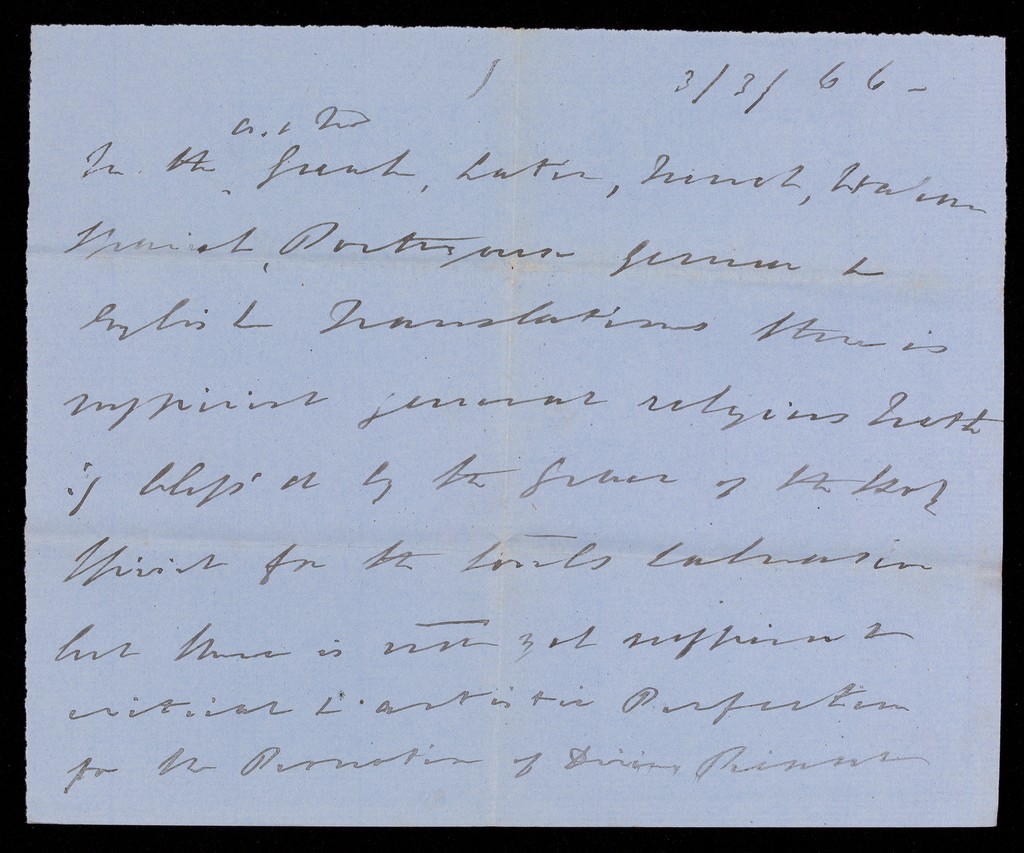 1 3/3/66 -
In the Greek, Latin, French, Italian
Spanish, Portuguese German &
English Translations there is
sufficient general religious Truth
if bless'd by the Grace of the Holy
Spirit for the Soul's Salvation
but there is not yet sufficient
critical & artistic Perfection
for the Promotion of Divine